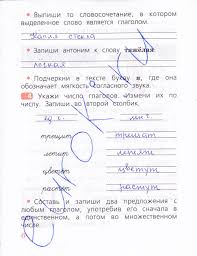 • Выпиши то словосочетание, в котором
выделенное слово является глаголом.
Капля стекла
• Запиши антоним к слову тяжёлая.
легкая
• Подчеркни в тексте букву и, где она
обозначает мягкость согласного звука.
Укажи число глаголов. Измени их по
числу. Запиши во второй столбик.
ед. ч. мн. ч.
трещит трещат
летит летят
цветёт цветут
растёт растут
• Составь и запиши два предложения с
любым глаголом, употребив его сначала в
единственном, а потом во множественном
числе.